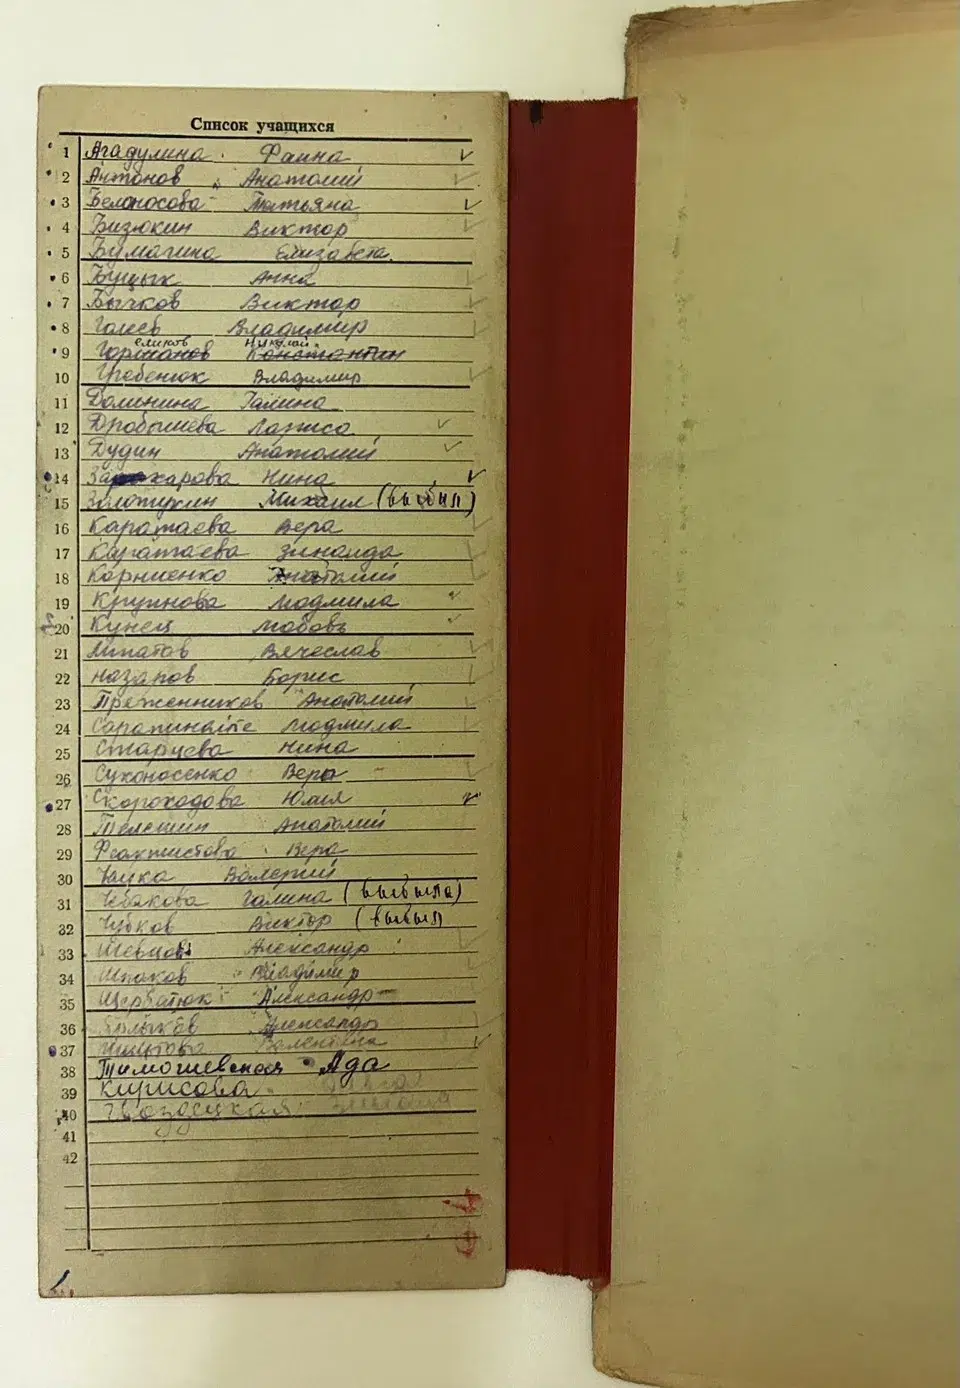 Список учащихся
1 Агадулина Фаина
2 Антонов Анатолий
3 Белоносова Татьяна
4 Бизюкин Виктор
5 Бумагина Елизавета.
6 Буцык Анна
7 Бычков Виктор
8 Голев Владимир
9 Николай Константин
10 Гребенюк Владимир
11 Домнина Галина
12 Дробышева Лариса
13 Дудин Анатолий
14 Захарова Нина
15 Золотухин Михаил (выбыл)
16 Каратаева Вера
17 Каратаева Зинаида
18 Корниенко Анатолий
19 Крупнова Людмила
20 Кунец Любовь
21 Липатов Вячеслав
22 Назаров Борис
23 Анатолий
24 Людмила
25 Старцева Нина
26 Суконосенко Вера
27 Скороходова Юлия
28 Телешин Анатолий
29 Феоктистова Вера
30 Валерий
31 Галина (выбыла)
32 Чубков Виктор (выбыл)
33 Шевцов Александр
34 Шпаков Владимир
35 Щербатюк Александр
36 Александр
37 Валентина
38 Тимошевская Ада
39 Кирисова
40 Гвоздецкая
41
42